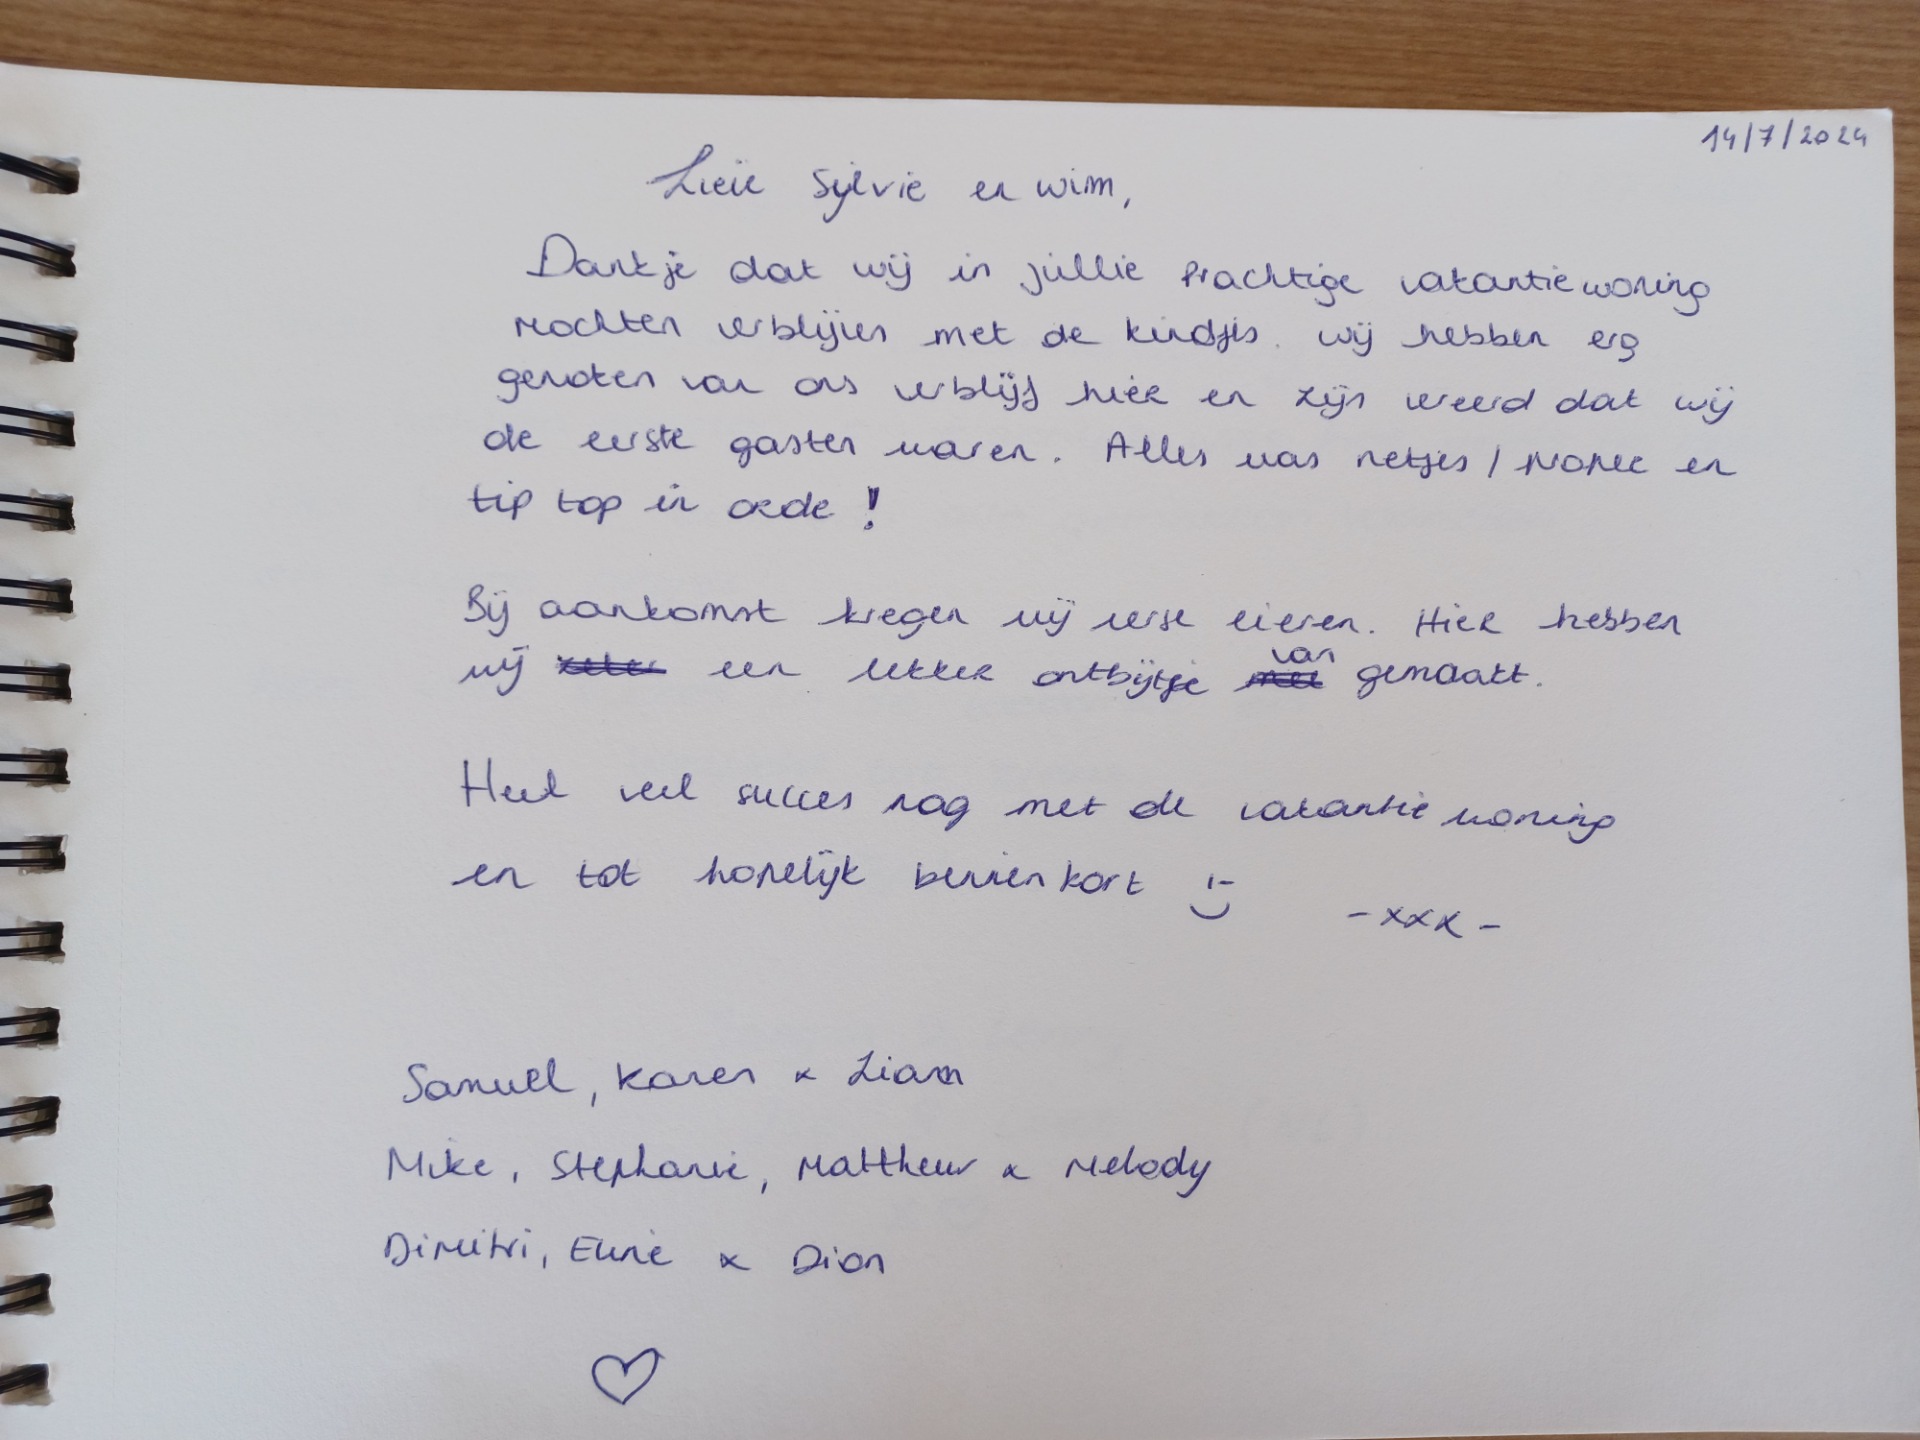 14/7/2024
Lieve Sylvie en Wim,
Dankje dat wij in jullie prachtige vakantiewoning
mochten verblijven met de kindjes. wij hebben erg
genoten van ons verblijf hier en zijn vereerd dat wij
de eerste gasten waren. Alles was netjes / proper en
tip top in orde !
Bij aankomst kregen wij verse eieren. Hier hebben
wij een lekker ontbijtje van gemaakt.
Heel veel succes nog met de vakantiewoning
en tot hopelijk binnenkort :-)
- xxx -
Samuel, Karen & Liam
Mike, Stephanie, Mattheur & Melody
Dimitri, Eline & Dion